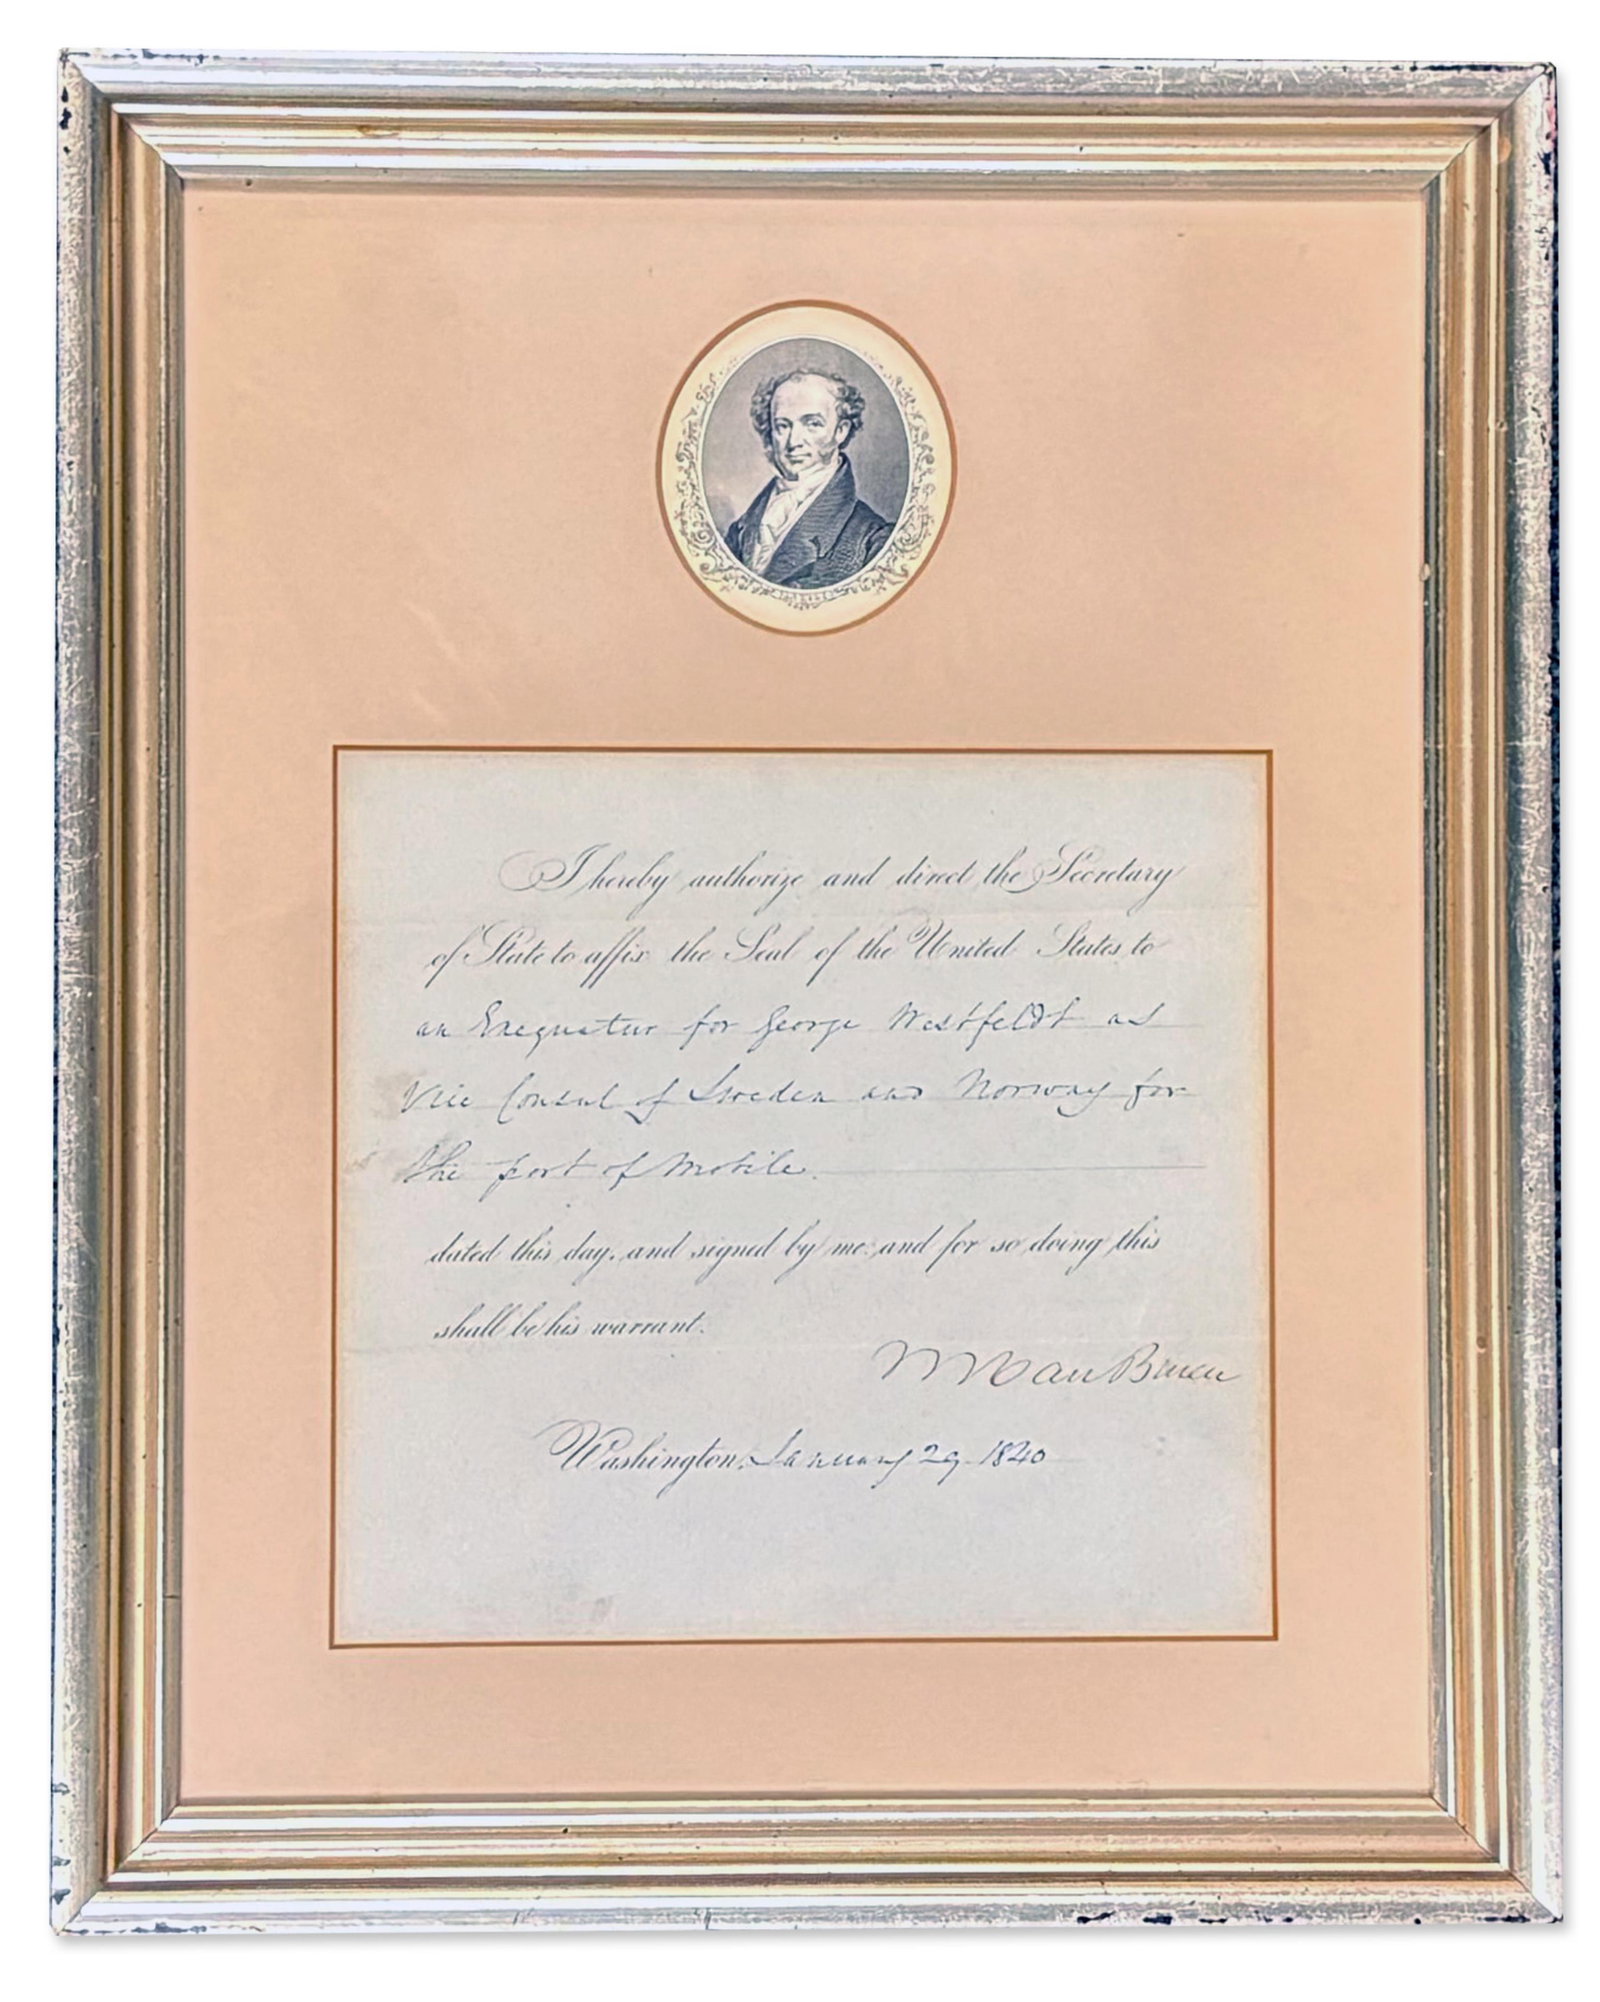 I hereby authorize and direct the Secretary
of State to affix the Seal of the United States to
an Exequatur for George Westfeldt as
Vice Consul of Sweden and Norway for
the port of Mobile.
dated this day, and signed by me: and for so doing this
shall be his warrant.
M Van Buren
Washington, January 29. 1840